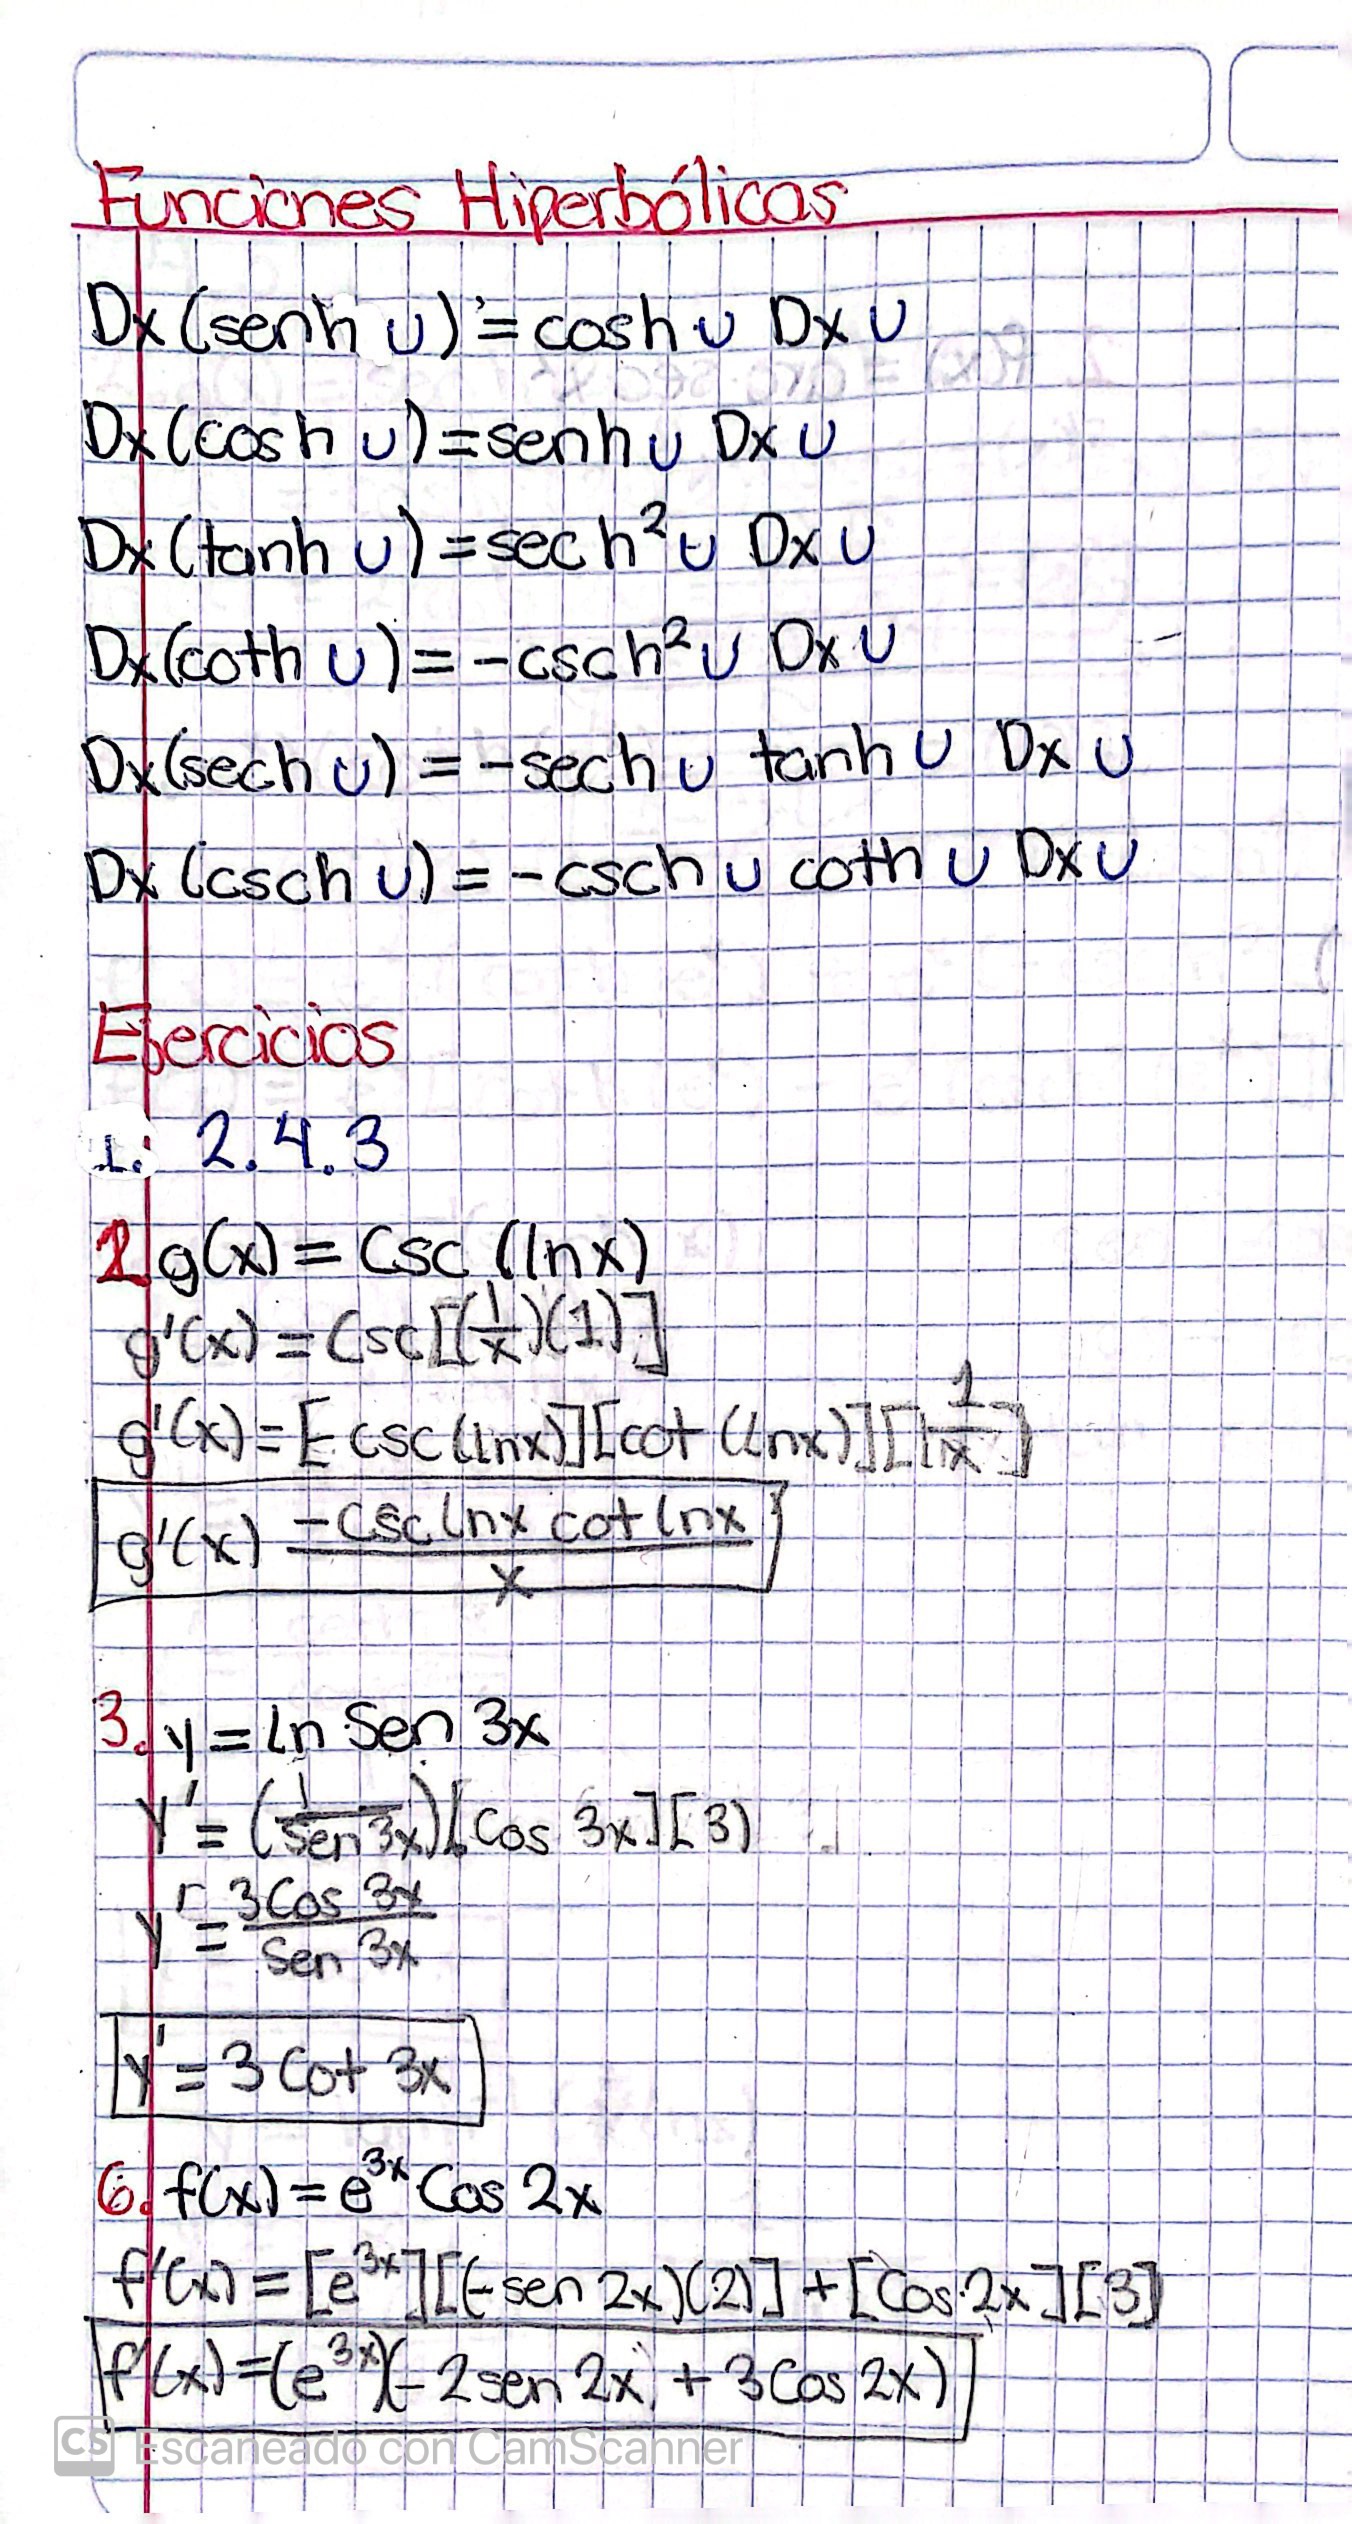 Funciones Hiperbólicas
Dx (senh u) = cosh u Dx u
Dx (cosh u) = senh u Dx u
Dx (tanh u) = sech² u Dx u
Dx (coth u) = -csch² u Dx u
Dx (sech u) = -sech u tanh u Dx u
Dx (csch u) = -csch u coth u Dx u
Ejercicios
1. 2.4.3
g(x) = Csc (ln x)
g'(x) = Csc[(1/x)(1)]
g'(x) = [-csc(lnx)][cot (lnx)][1/x]
g'(x) = -csc lnx cot lnx / x
3. y = ln Sen 3x
y' = (1/Sen 3x)[Cos 3x][3]
y' = 3 Cos 3x / Sen 3x
y' = 3 Cot 3x
6. f(x) = e³ˣ Cos 2x
f'(x) = [e³ˣ][(-sen 2x)(2)] + [Cos 2x][3]
f'(x) = (e³ˣ)(-2 sen 2x + 3 Cos 2x)
CS Escaneado con CamScanner